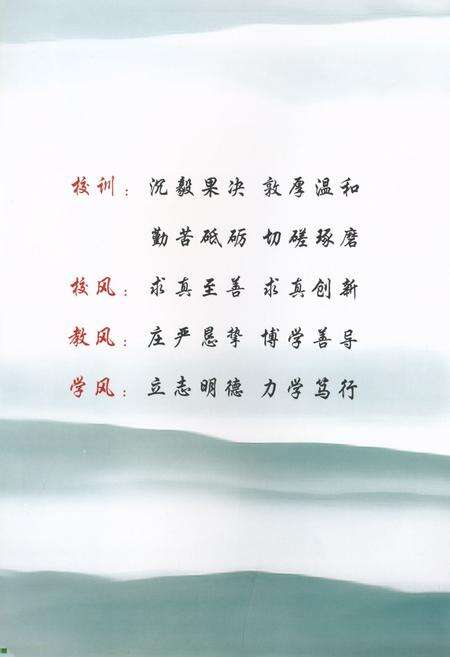 校训：沉毅果决 敦厚温和
勤苦砥砺 切磋琢磨
校风：求真至善 求真创新
教风：庄严恳挚 博学善导
学风：立志明德 力学笃行